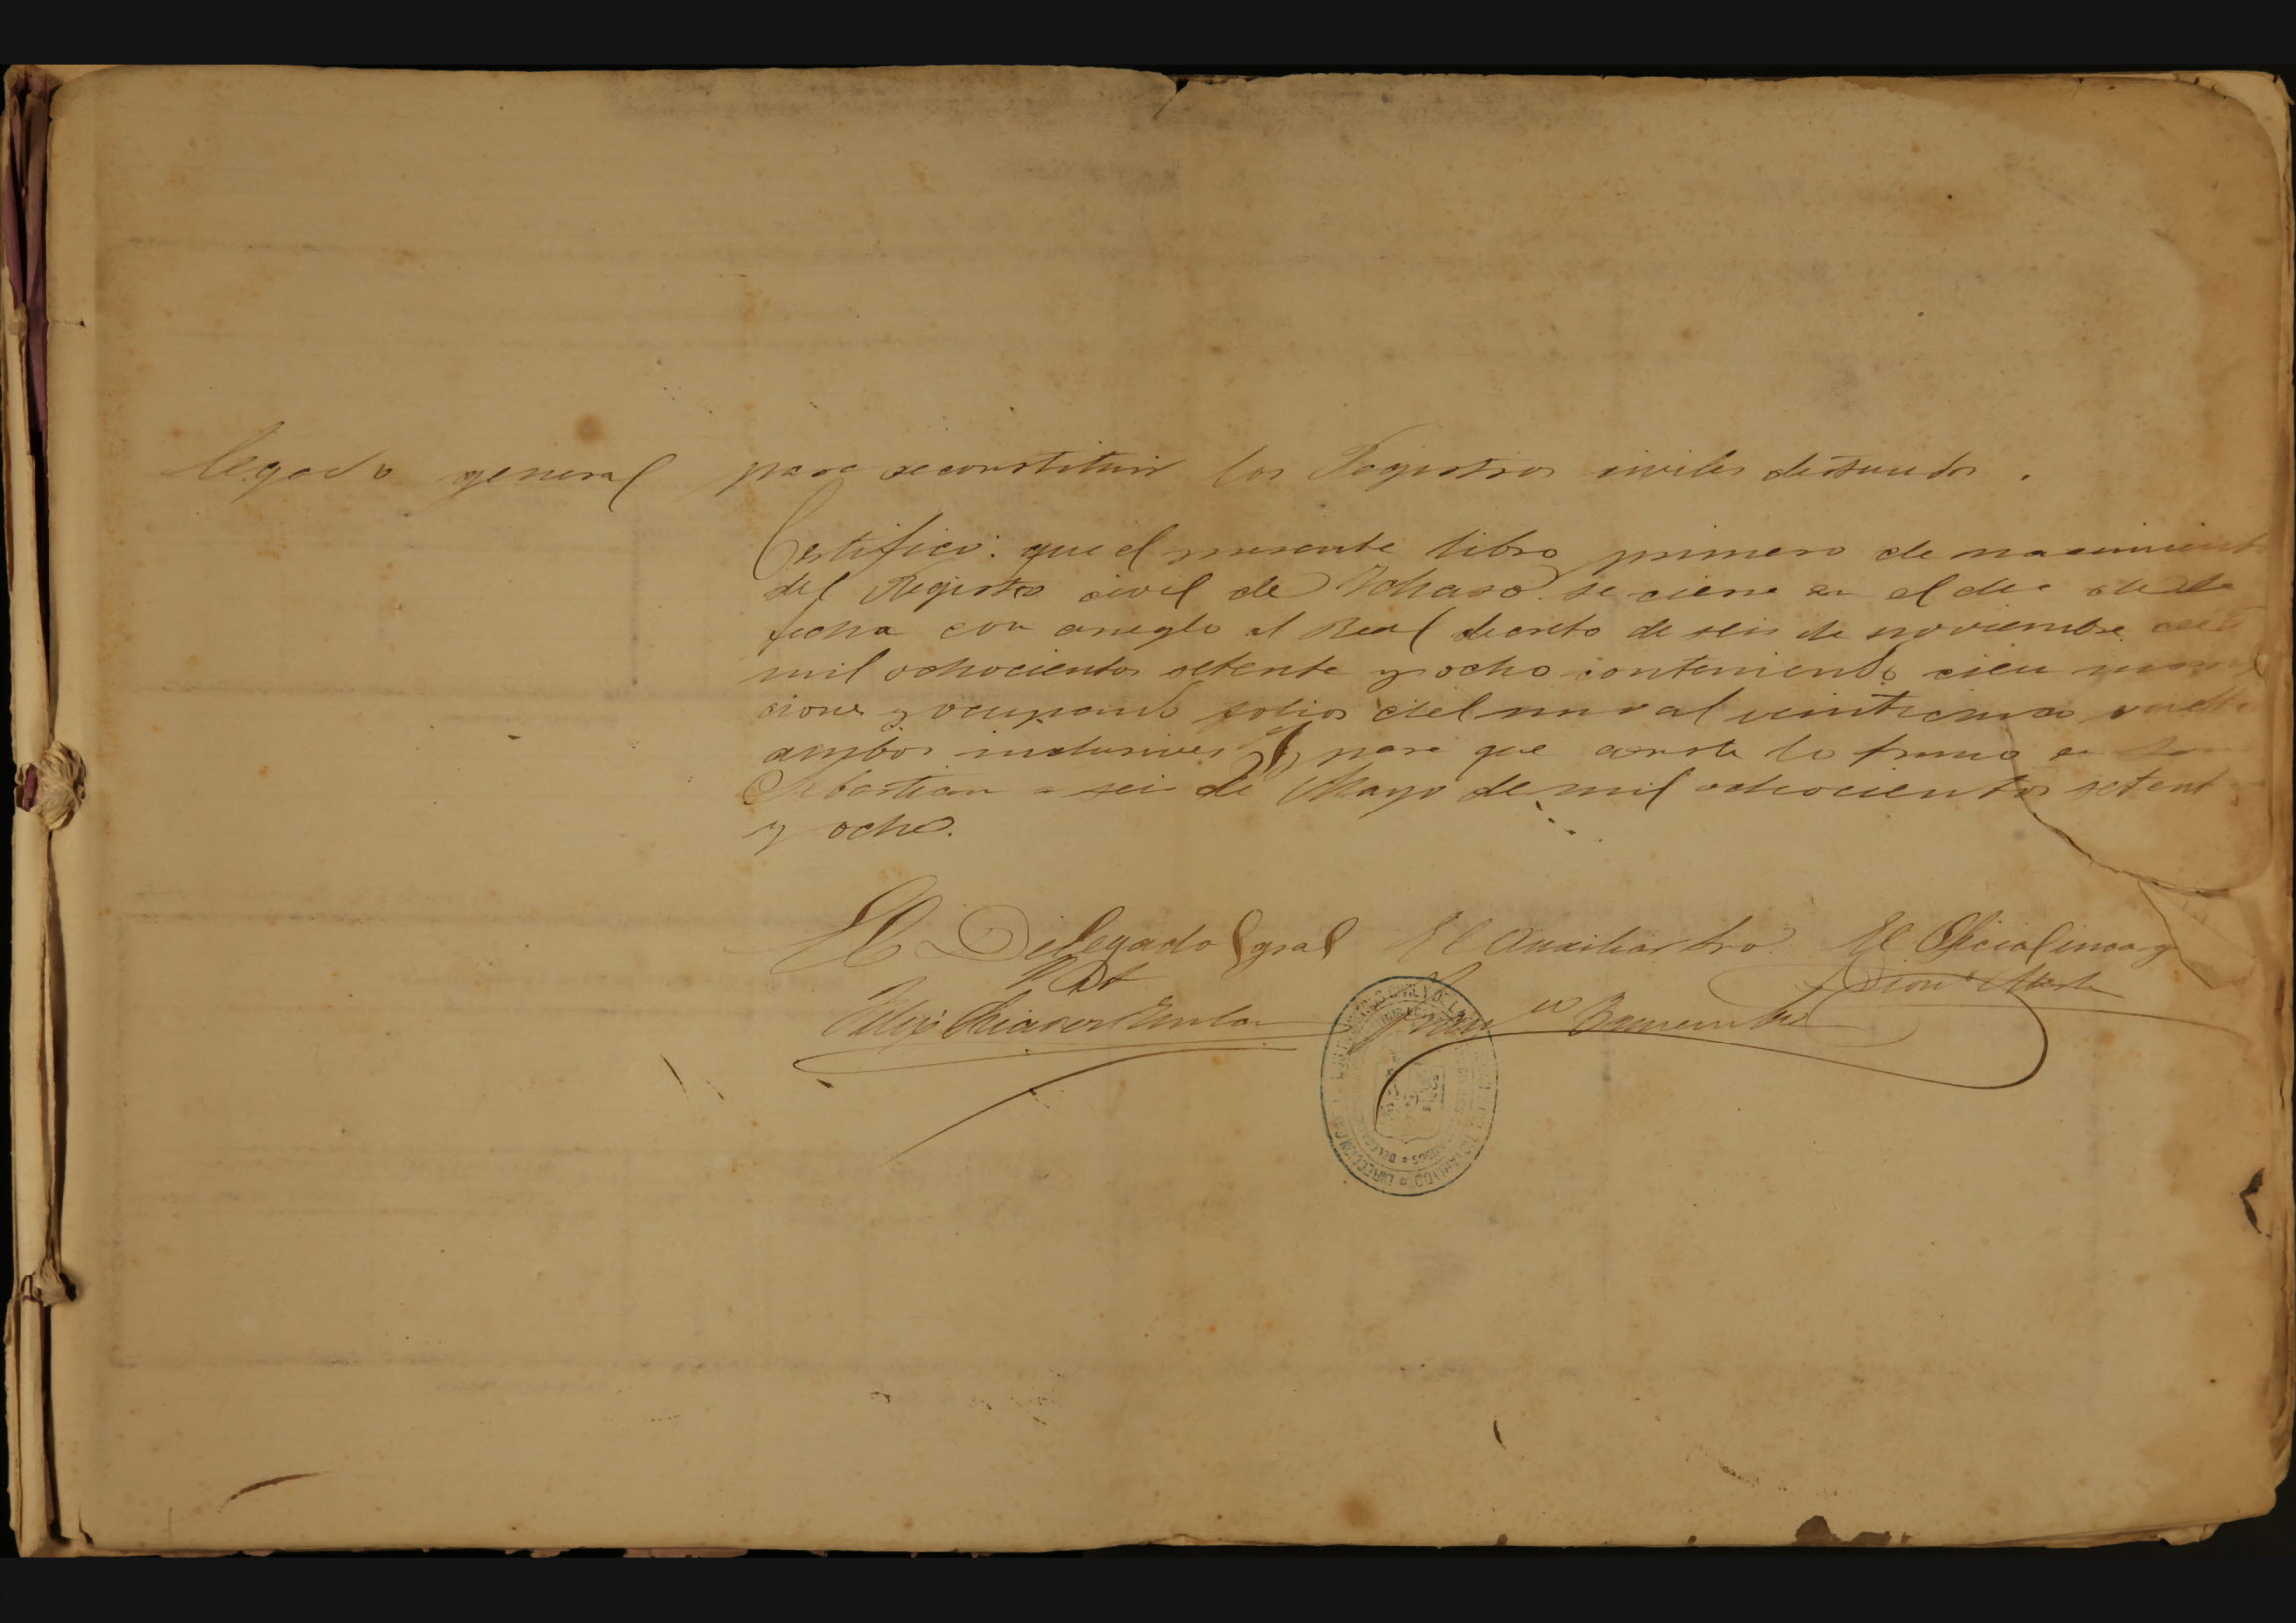 legado general para reconstituir los Registros civiles destruidos.
Certifico: que el presente libro primero de nacimiento
del Registro civil de Ichaso se cierra en el dia de la
fecha con arreglo al Real decreto de seis de noviembre de
mil ochocientos setenta y ocho conteniendo cien
ciones y ocupando folios del uno al veinticinco vuelto
ambos inclusives Y para que conste lo firmo en San
Sebastian a seis de Mayo de mil ochocientos setent
y ocho.
El Delegado gral El Auxiliar El Oficial
DIRECCION